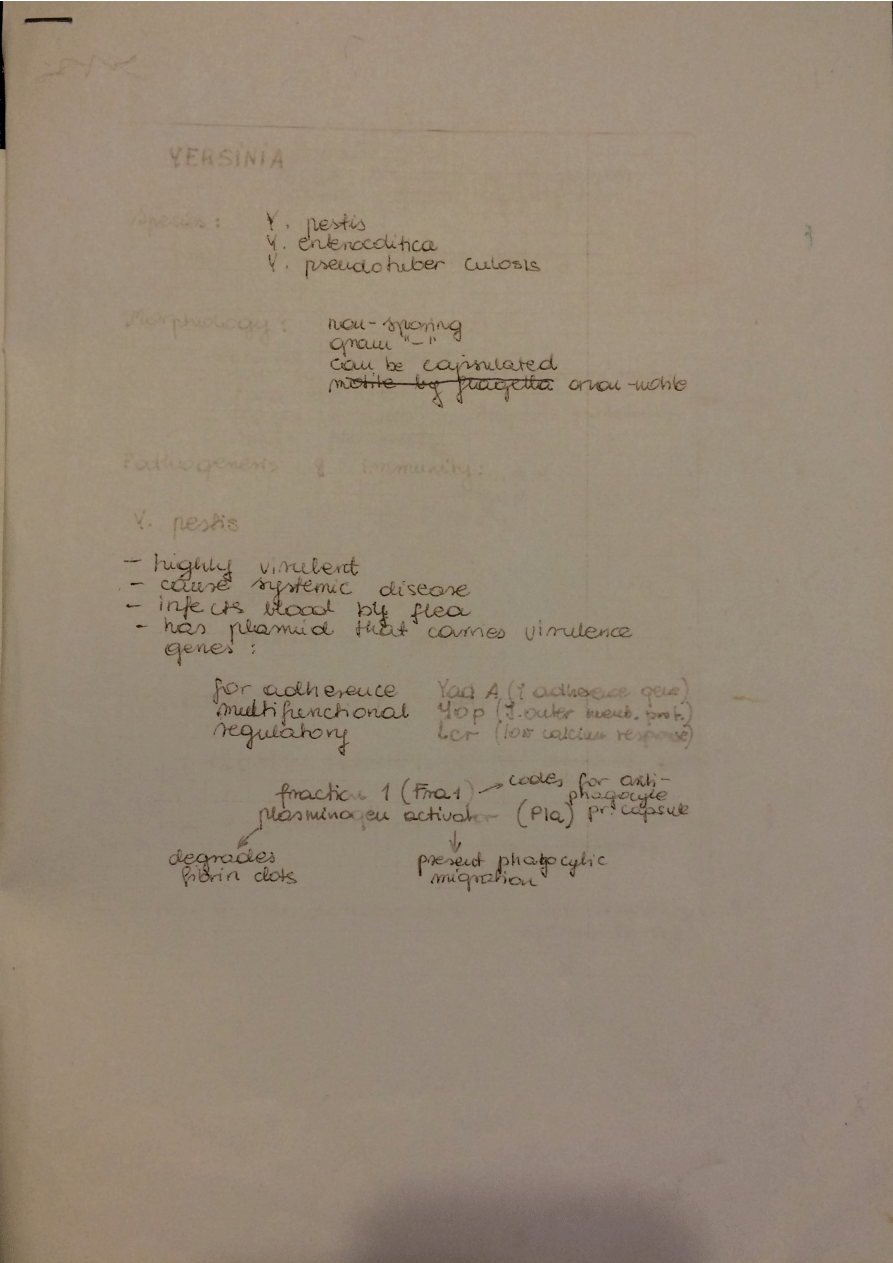 YERSINIA
Species: Y. pestis
Y. enterocolitica
Y. pseudotuber culosis
Morphology: non-sporing
gram "-"
can be capsulated
motile by flagella or non-motile
Pathogenesis & immunity:
Y. pestis
- highly virulent
- cause systemic disease
- infects blood by flea
- has plasmid that carries virulence
genes:
for adherence Yad A (Y adherence gene)
multifunctional Yop (Y. outer memb. prot.)
regulatory Lcr (low calcium response)
fraction 1 (Fra1) → codes for anti-
phagocyte
plasminogen activator (Pla) pr. capsule
degrades present phagocytic
fibrin clots migration